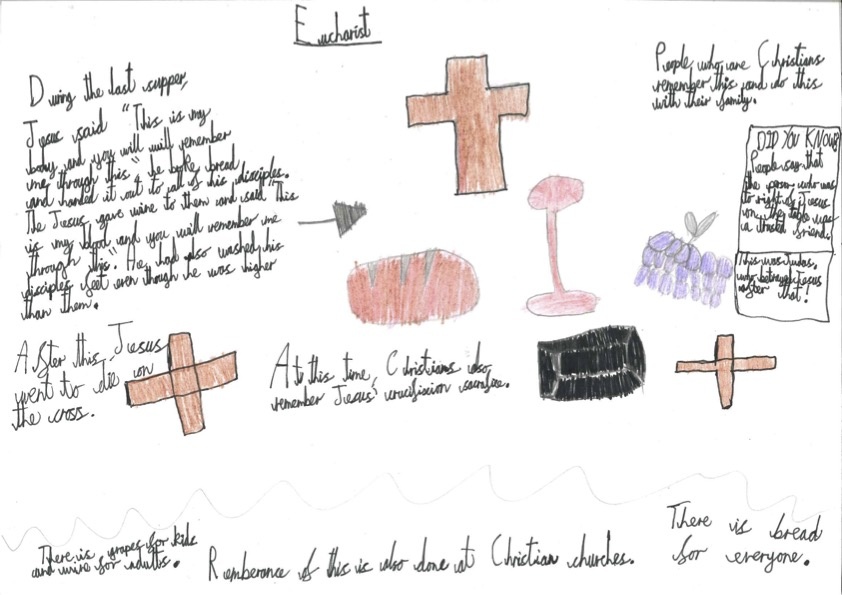 Eucharist
During the last supper,
Jesus said "This is my
body and you will will remember
me through this", he broke bread
and handed it out to all of his disciples.
The Jesus gave wine to them and said "This
is my blood and you will remember me
through this." He had also washed his
disciples feet even though he was higher
than them.
People who are Christians
remember this and do this
with their family.
DID YOU KNOW?
People say that
the person who was
to right of Jesus
on the table was
a trusted friend.
This was Judas,
who betrayed Jesus
after that!
After this, Jesus
went to die on
the cross.
At this time, Christians also
remember Jesus' crucifixion sacrifice.
There is grapes for kids
and wine for adults.
Remberance of this is also done at Christian churches.
There is bread
for everyone.